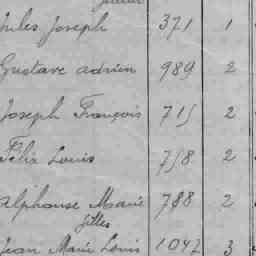 Jules Joseph 371 1
Gustave adrien 989 2
Joseph François 715 2
Félix Louis 758 2
Alphonse Marie 788 2
Gilles
Jean Marie Louis 1047 3